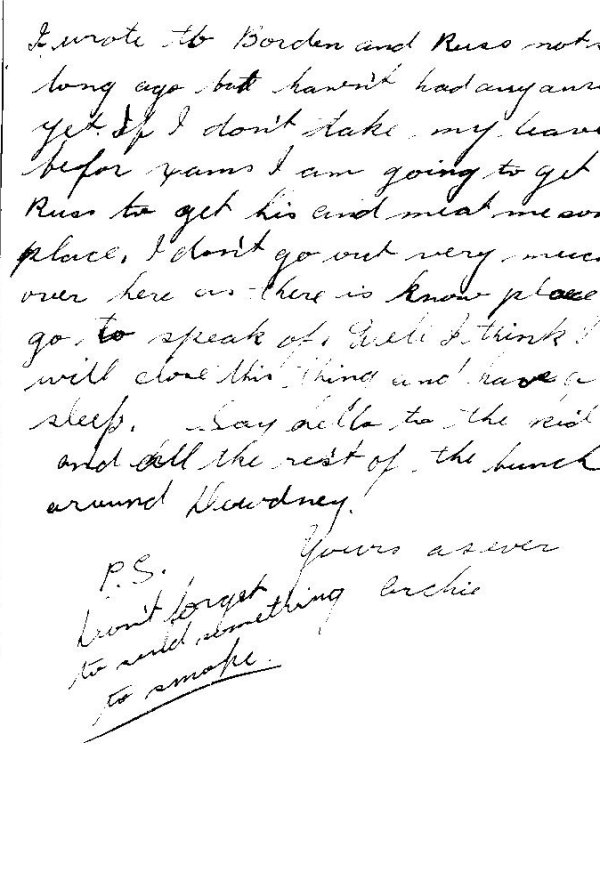 I wrote to Borden and Russ not
long ago but haven't had any ans
yet. If I don't take my leave
befor xams I am going to get
Russ to get his and meat me som
place. I don't go out very muc
over here as there is know place
go to speak of. Well I think I
will close this thing and have a
sleep. Say hello to the kid
and all the rest of the bunch
around Dewdney.
Yours as ever
Archie
P.S.
Don't forget
to send something
to smoke.